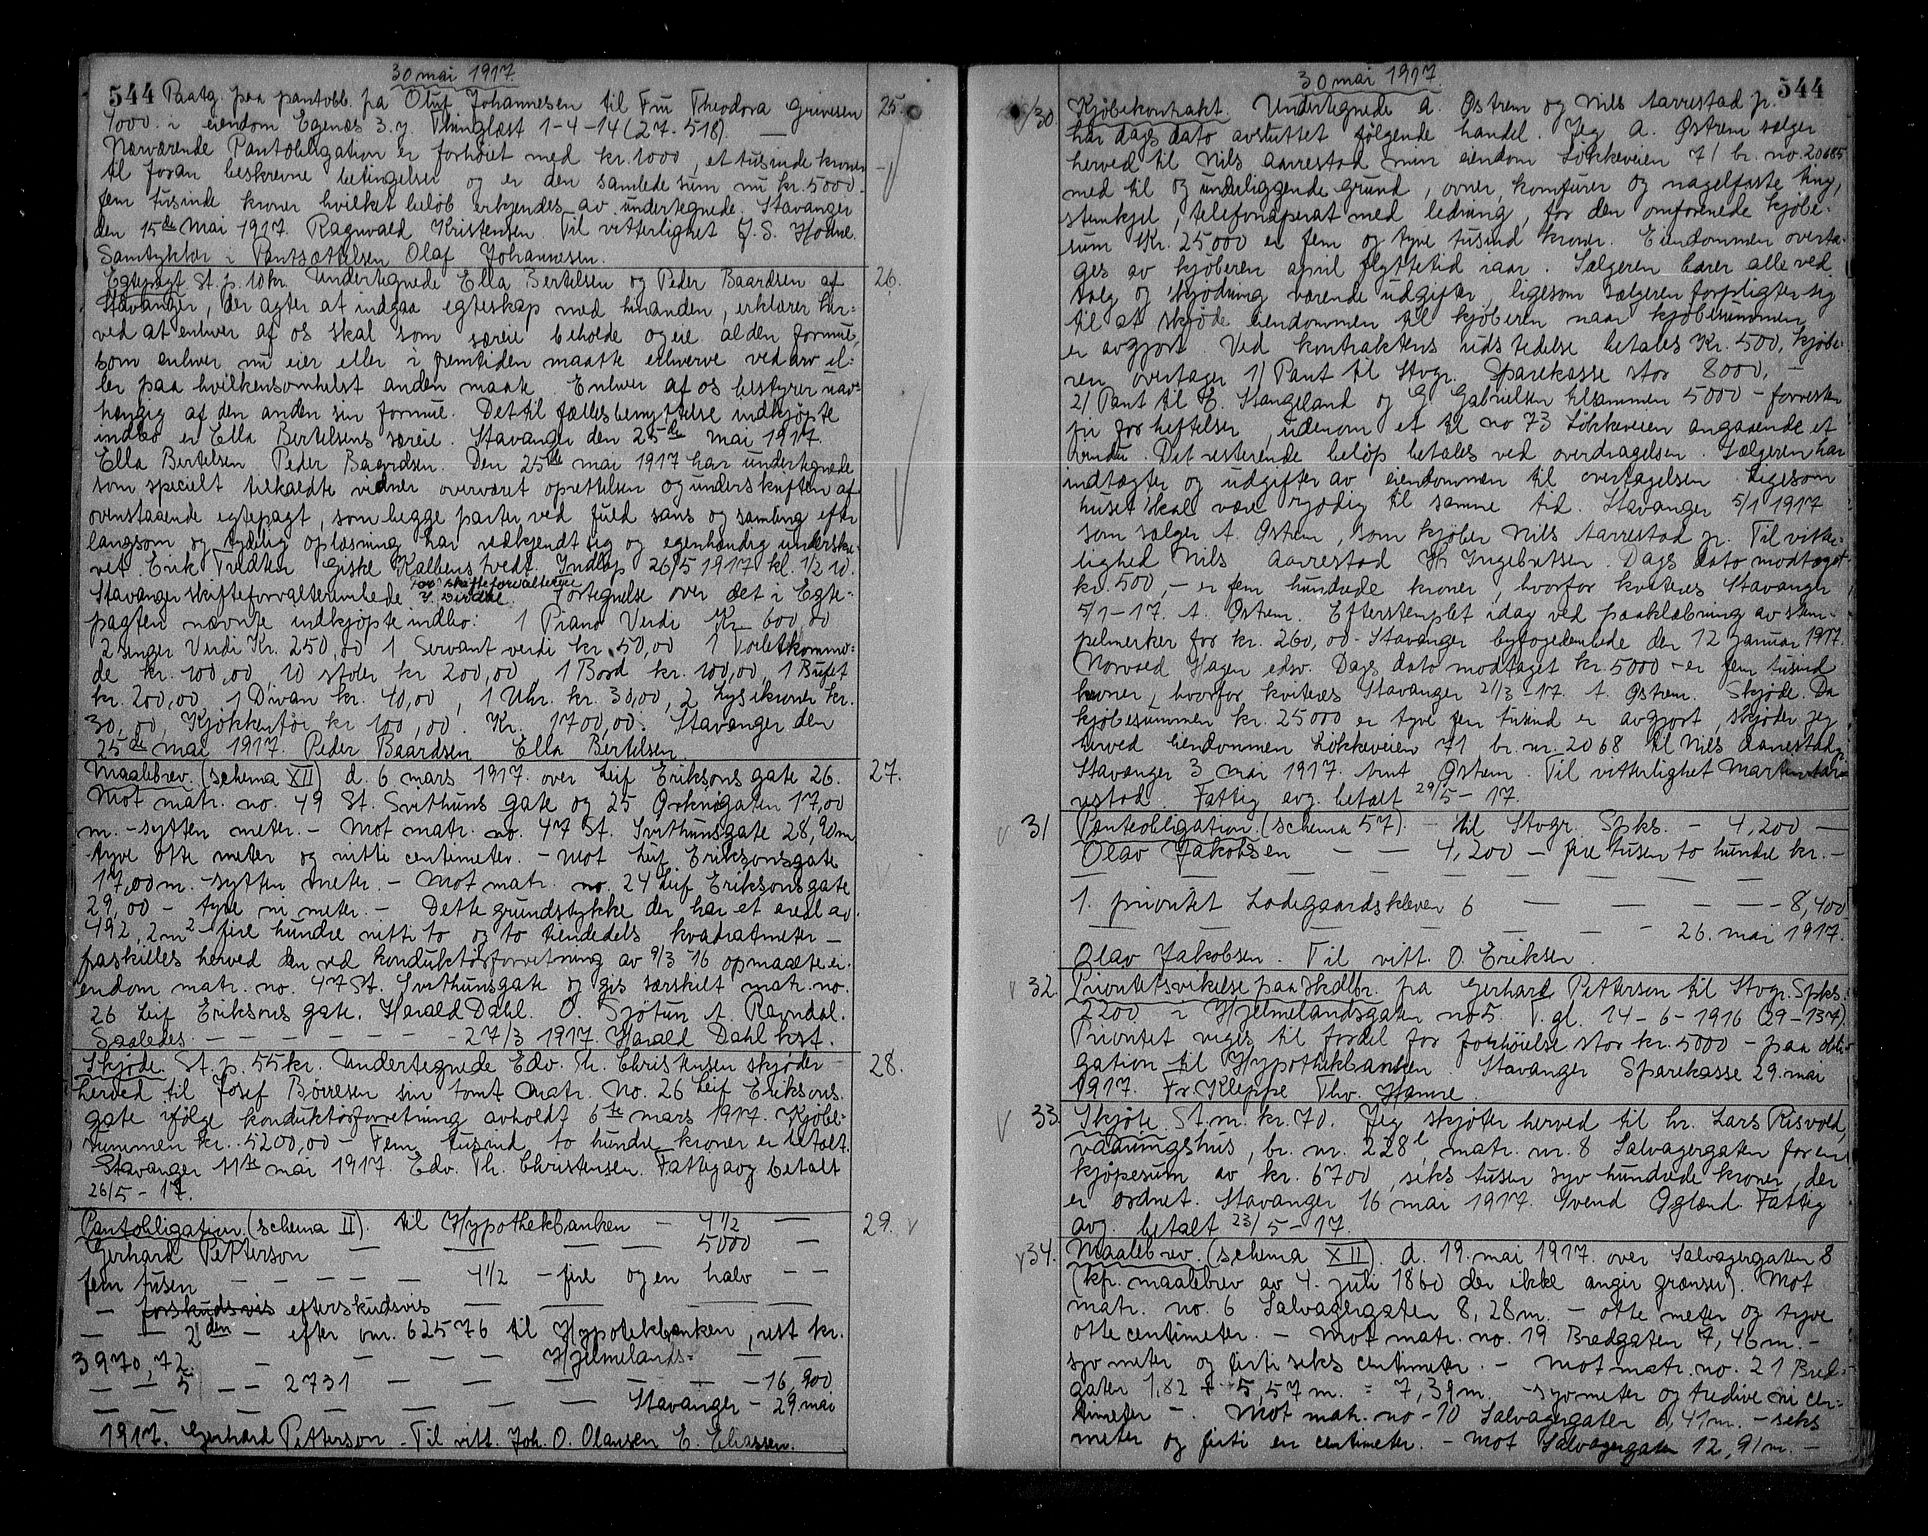 30 mai 1917.
544 Paatg. paa pantobl. fra Oluf Johannesen til Fru Theodora Grevesen 25
4000 i eiendom Egenæs 3. y. Thinglæst 1-4-14 (27. 518). —
Nærværende Pantobligation er forhøiet med kr. 1000, et tusinde kroner
til foran beskrevne betingelser og er den samlede sum nu kr. 5000 -
fem tusinde kroner hvilket beløb erkjendes av undertegnede. Stavanger
den 15de Mai 1917. Ragnvald Kristensen Til vitterlighet J. S. Hodne.
Samtykker i Pantsættelsen Olaf Johannesen.
Egtepagt St. p. 10 kr. Undertegnede Ella Bertelsen og Peder Baardsen af 26.
Stavanger, der agter at indgaa egteskap med hinanden, erklærer her-
ved at enhver af os skal som særeie beholde og eie al den formue,
som enhver nu eier eller i fremtiden maatte erhverve ved arv el-
ler paa hvilkensomhelst anden maate. Enhver af os bestyrer uav-
hengig af den anden sin formue. Det til fælles benyttelse indkjøpte
indbo er Ella Bertelsens særeie. Stavanger den 25de mai 1917.
Ella Bertelsen Peder Baardsen. Den 25de mai 1917 har undertegnede
som specielt tilkaldte vidner overværet oprettelsen og underskriften af
ovenstaaende egtepagt, som begge parter ved fuld sans og samling efter
langsom og tydelig oplæsning har vedkjendt sig og egenhændig underskre-
vet. Erik Tredten Giske Kalbenstvedt. Indløp 26/5 1917 kl. 1/2 10.
Stavanger skifteforvalterembede for skifteforvalteren Fortegnelse over det i Egte-
pagten nævnte indkjøpte indbo: 1 Piano Verdi Kr 600,00
2 senger Verdi Kr. 250,00 1 Servant verdi kr. 50,00 1 Toiletkommo-
de kr. 100,00, 10 stoler kr 200,00, 1 Bord kr. 100,00, 1 Bufet
kr. 200,00, 1 Divan kr. 40,00, 1 Uhr. kr. 30,00, 2 Lysekroner kr.
30,00, Kjøkkentøi kr 100,00. Kr. 1700,00. Stavanger den
25de mai 1917. Peder Baardsen Ella Bertelsen.
Maalebrev. (schema XII) d. 6 mars 1917. over Leif Eriksons gate 26. 27.
Mot matr. no. 49 St. Svithuns gate og 25 Ørknøgaten 17,00
m. - sytten meter. - Mot matr. no. 47 St. Svithunsgate 28,90 m
tyve otte meter og nitti centimeter. - Mot Leif Eriksonsgate
17,00 m. - sytten meter. - Mot matr. no. 24 Leif Eriksonsgate
29,00 - tyve ni meter. - Dette grundstykke der har et areal av
492,2 m2 - fire hundre nitti to og to tiendedels kvadratmeter -
fraskilles herved den ved konduktørforretning av 9/3-16 opmaalte ei-
endom matr. no. 47 St. Svithunsgate og gis særskilt matr. no.
26 Leif Eriksons gate. Harald Dahl. O. Sjøtun A. Ravndal.
Saaledes. - - - - - - 27/3 1917. Harald Dahl kst.
Skjøde. St. p. 55 kr. Undertegnede Edv. Th. Christensen skjøder 28.
herved til Josef Børresen sin tomt matr. No. 26 Leif Eriksons.
gate ifølge konduktørforretning avholdt 6te mars 1917. Kjøbe-
summen kr. 5200,00 - Fem tusind to hundre kroner er betalt.
Stavanger 11te mai 1917. Edv. Th. Christensen. Fattigavg betalt
26/5 - 17.
Pantobligation (schema II). til Hypothekbanken - 4 1/2 — 29.
Gerhard Petterson — — — — 5000 —
fem tusen — — — — — 4 1/2 - fire og en halv — —
— forskudsvis efterskudsvis — — — —
— — 2den — efter vnr. 62576 til Hypotekbanken, rest kr.
3970,72. — — — — Hjelmelands- — —
— — 5 — — 2731 — — — — — 16,900
— — — — — — — Stavanger - 29. mai
1917. Gerhard Petterson - Til vitt. Joh. O. Olausen E. Eliassen.
30 mai 1917
544
30. Kjøbekontrakt. Undertegnede A. Østrem og Nils Aarrestad jr.
har dags dato avsluttet følgende handel. Jeg A. Østrem sælger
herved til Nils Aarrestad min eiendom Løkkeveien 71 br. no. 20685
med til og underliggende grund, ovner, komfurer og nagelfaste ting,
stenkjel, telefonaperat med ledning, for den omforenede kjøbe-
sum Kr. 25000 er fem og tyve tusind kroner. Eiendommen overta-
ges av kjøberen april flyttetid iaar. Sælgeren bærer alle ved
salg og skjødning værende udgifter, ligesom sælgeren forpligter sig
til at skjøde eiendommen til kjøberen naar kjøbesummen
er avgjort. Ved kontraktens udstedelse betales Kr. 500, kjøbe-
ren overtager 1/ Pant til Stvgr. Sparekasse stor 8000, -
2/ Pant til E. Stangeland og G Gabrielsen tilsammen 5000 - forresten
fri for heftelser, udenom et til no 73 Løkkeveien angaaende et
vindu. Det resterende beløp betales ved overdragelsen. Sælgeren har
indtægter og udgifter av eiendommen til overtagelsen. Ligesom
huset skal være rydig til samme tid. Stavanger 5/1 1917
som sælger A. Østrem, som kjøber Nils Aarrestad jr. Til vitter-
lighed Nils Aarrestad Th Ingebretsen. Dags dato modtaget
kr. 500, - er fem hundrede kroner, hvorfor kviteres Stavanger
5/1-17. A. Østrem. Efterstemplet idag ved paaklæbning av stem-
pelmerker for kr. 260,00 - Stavanger byfogedembede den 12 januar 1917.
Norvald Hagen edsv. Dags dato modtaget kr. 5000 - er fem tusind
kroner, hvorfor kviteres Stavanger 21/3-17. A. Østrem. Skjøde. Da
kjøbesummen kr. 25000 er tyve fem tusind er avgjort, skjøder jeg
herved eiendommen Løkkeveien 71 br. nr. 2068 til Nils Aarrestad jr.
Stavanger 3 mai 1917. Arnt Østrem. Til vitterlighet Martin Aar-
restad. Fattig avg. betalt 29/5 - 17.
31 Panteobligation. (schema 57) - til Stvgr. Spks. - 4,200 —
Olav Jakobsen — — 4,200 - fire tusen to hundre kr. -
— — — — — — — — — —
1. prioritet Ladegaardskleven 6 — — — — - 8,400
— — — — — — — — 26. mai 1917.
Olav Jakobsen. Til vitt. O. Eriksen.
32. Prioritetsvikelse paa skdlbr. fra Gerhard Pettersen til Stvgr. Spks.
2200 i Hjelmelandsgaten no 5. T. gl. 14-6-1916 (29-137)
Prioritet viges til fordel for forhøielse stor kr. 5000 - paa obli-
gation til Hypothekbanken. Stavanger Sparekasse 29. mai
1917. Fr. Kleppe Thv. Hamre.
33 Skjøte. St. m. kr. 70. Jeg skjøter herved til hr. Lars Risvold,
vaaningshus, br. nr. 228 l, matr. nr. 8 Salvagergaten for en
kjøpesum av kr. 6700, seks tusen syv hundrede kroner, der
er ordnet. Stavanger 16 mai 1917. Svend Øglænd. Fattig
avg. betalt 23/5 - 17.
34. Maalebrev. (schema XII) d. 19. mai 1917. over Salvagergaten 8
(kfr. maalebrev av 4. juli 1860 der ikke angir grænser). Mot
matr. no. 6 Salvagergaten 8,28 m. - otte meter og tyve
otte centimeter. - Mot matr. no. 19 Bredgaten 7,46 m. -
syv meter og firti seks centimeter. - Mot matr. no. 21 Bred-
gaten 1,82 + 5,57 m. = 7,39 m. - syv meter og tredive ni cen-
timeter -. Mot matr. no - 10 Salvagergaten 6,41 m. - seks
meter og firti en centimeter. - Mot Salvagergaten 12,91 m. -